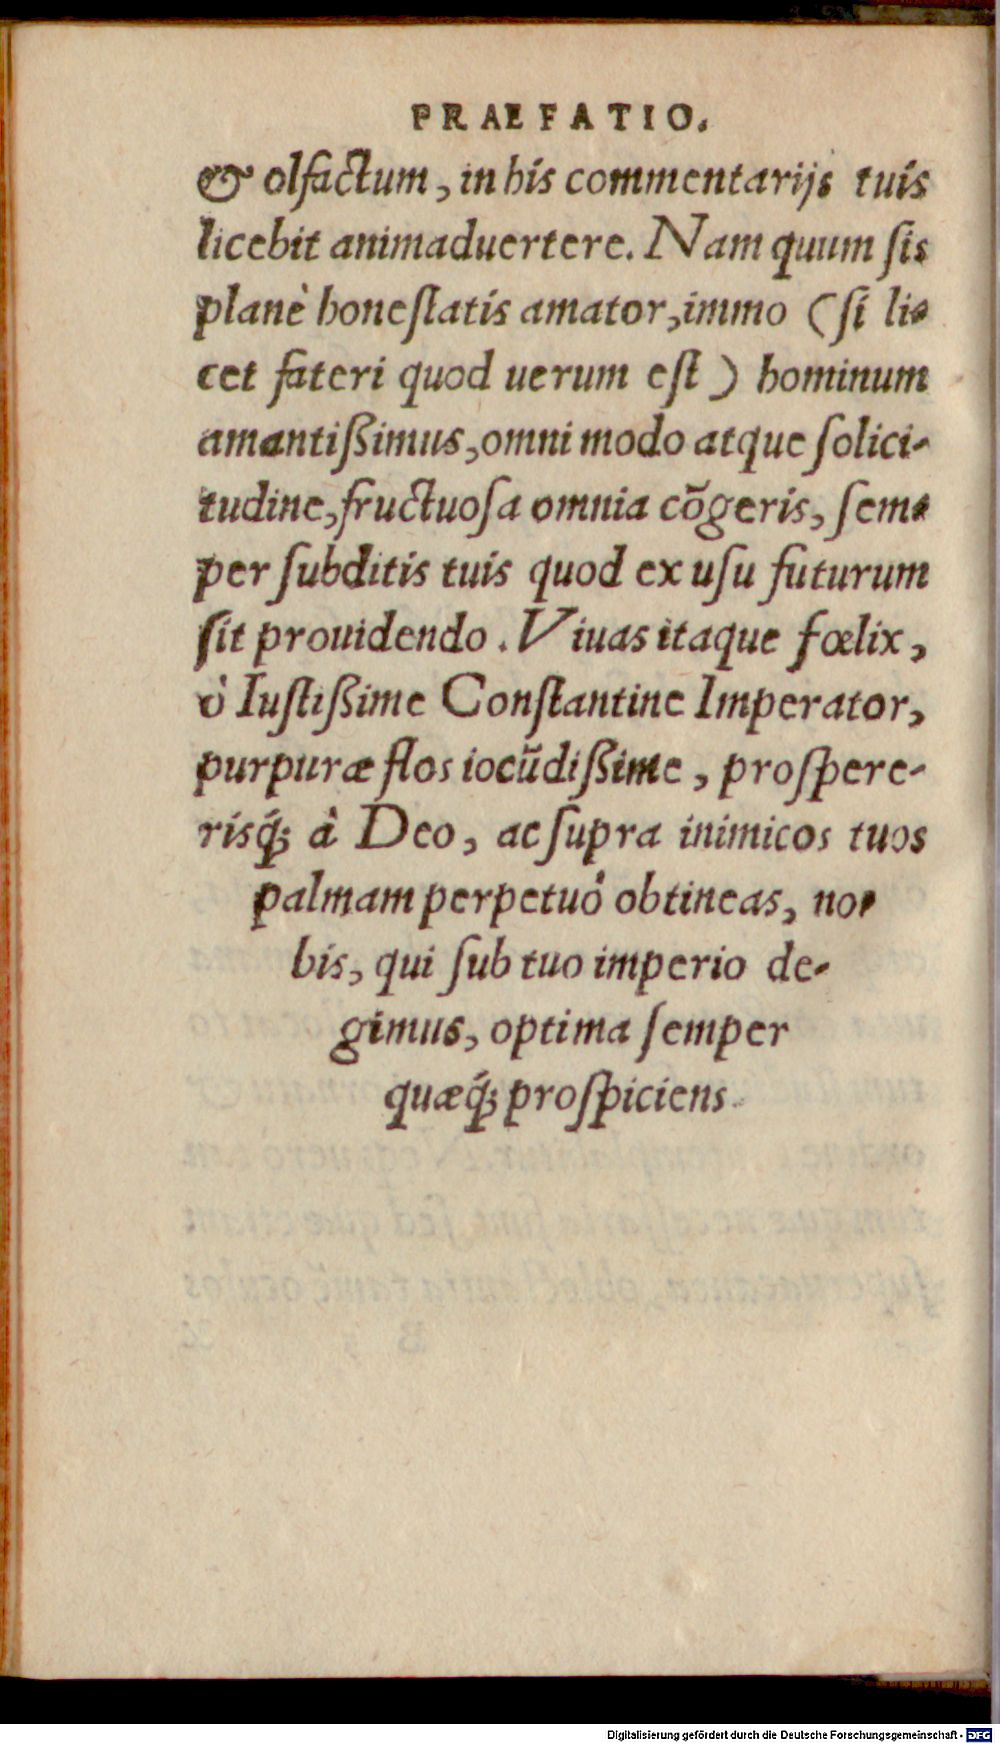 PRAEFATIO.
& olfactum, in his commentarijs tuis
licebit animaduertere. Nam quum ſis
planè honeſtatis amator, immo (ſi li-
cet fateri quod uerum eſt) hominum
amantißimus, omni modo atque ſolici-
tudine, fructuoſa omnia cõgeris, ſem-
per ſubditis tuis quod ex uſu futurum
ſit prouidendo. Viuas itaque fœlix,
ô Iuſtißime Conſtantine Imperator,
purpuræ flos iocũdißime, proſpere-
risq́; à Deo, ac ſupra inimicos tuos
palmam perpetuò obtineas, no-
bis, qui ſub tuo imperio de-
gimus, optima ſemper
quæq́; proſpiciens.
Digitalisierung gefördert durch die Deutsche Forschungsgemeinschaft - DFG